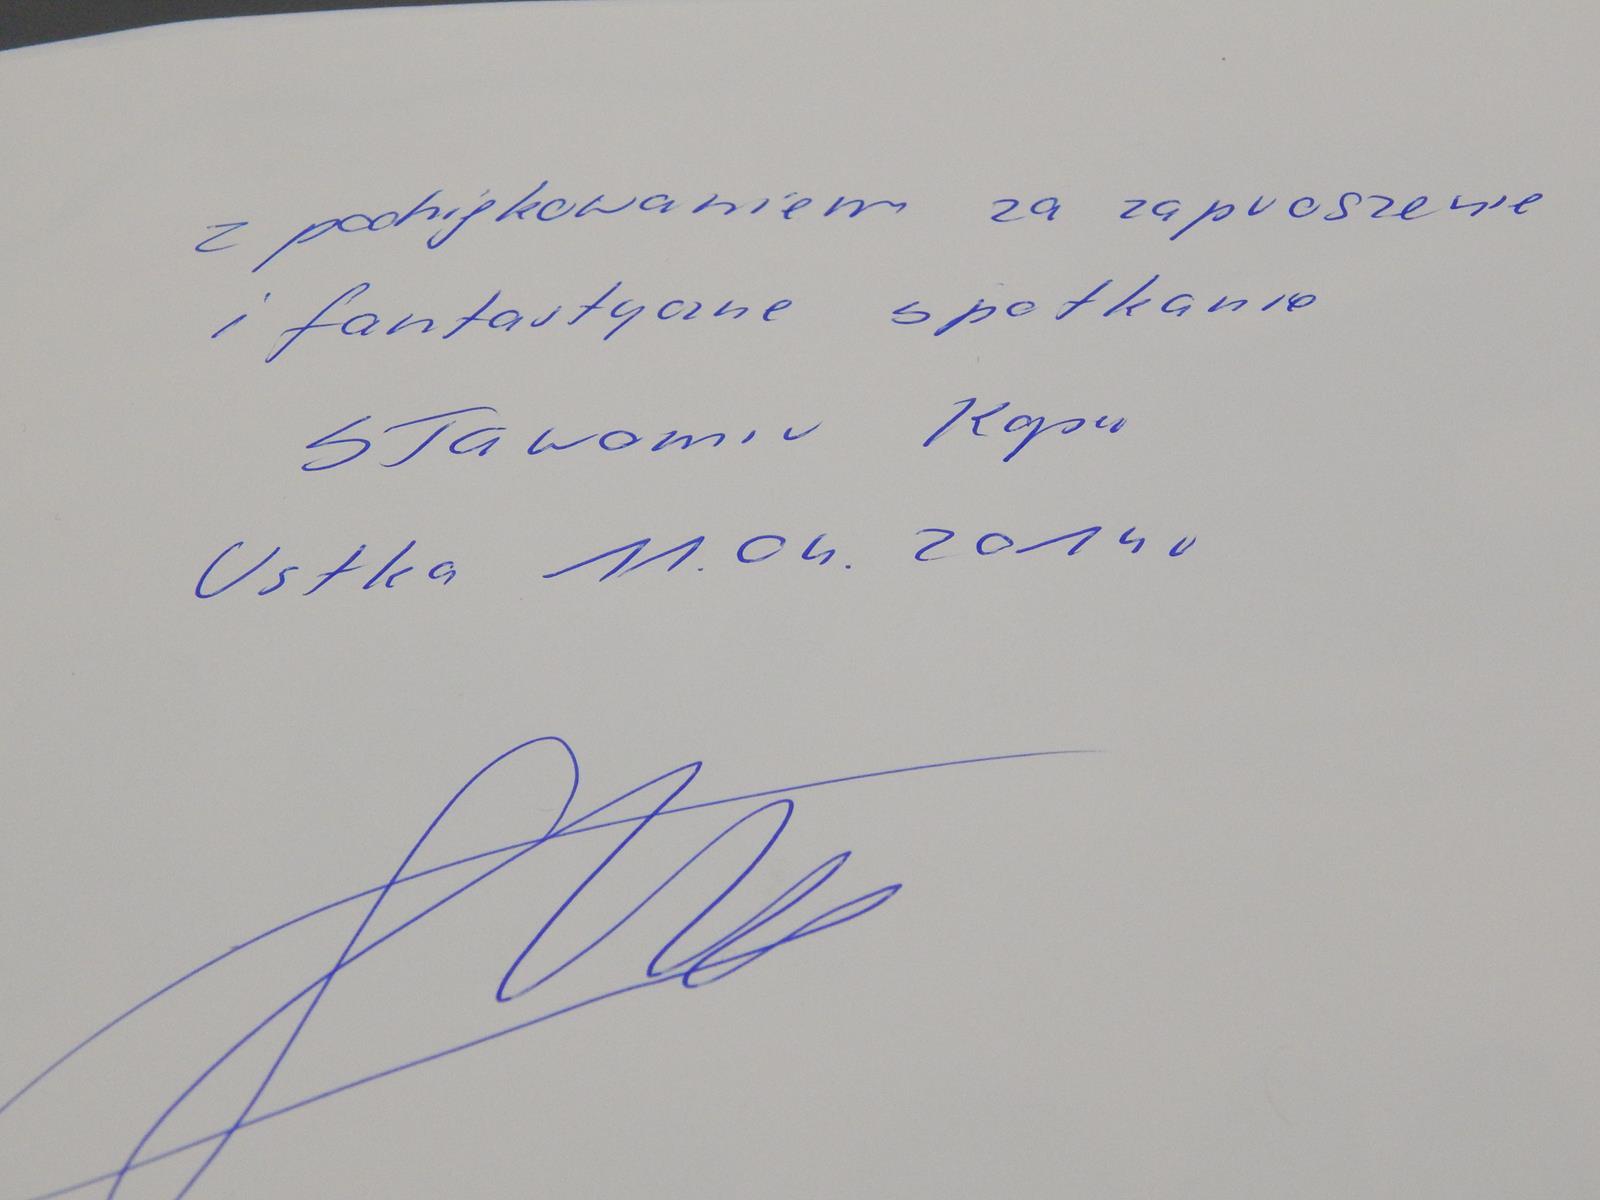 z podziękowaniem za zaproszenie
i fantastyczne spotkanie
Sławomir
Ustka 11.04.2014r